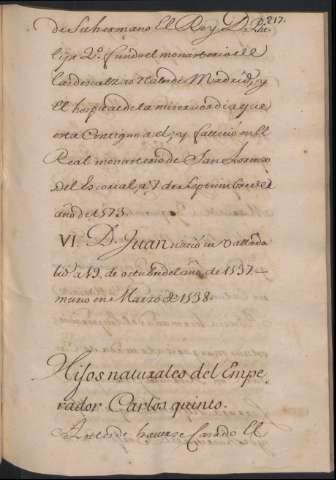 217.
de Su hermano el Rey D. Phe
lipe 2º. fundo el monasterio de
las descalzas reales de Madrid, y
El hospital de la misericordia que
esta Contiguo a el, y fallecio en El
Real monasterio de San Lorenzo
del Escorial, a 7 de Septiembre del
año de 1573.
VI. Dn. Juan nacio en Vallado
lid a 19. de octubre del año de 1537
murio en Marzo de 1538.
Hijos naturales del Empe
rador Carlos quinto.
Antes de haverse Casado El